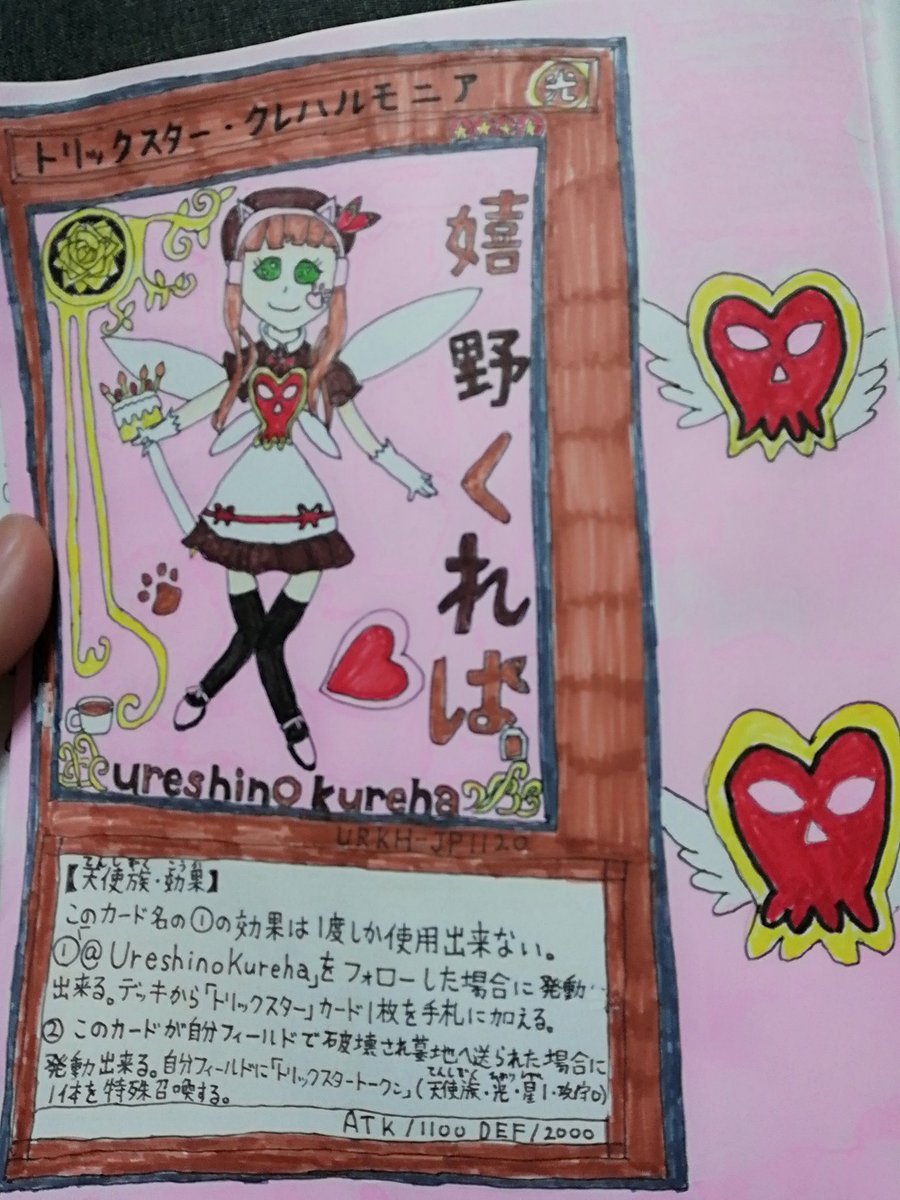 トリックスター・クレハルモニア
光
嬉野くれは
ureshino kureha
URKH-JP1120
てんしぞく こうか
【天使族・効果】
このカード名の①の効果は1度しか使用出来ない。
①「@UreshinoKureha」をフォローした場合に発動
出来る。デッキから「トリックスター」カード1枚を手札に加える。
② このカードが自分フィールドで破壊され墓地へ送られた場合に
発動出来る。自分フィールドに「トリックスタートークン」(天使族・光・星1・攻守0)
1体を特殊召喚する。
ATK/1100 DEF/2000